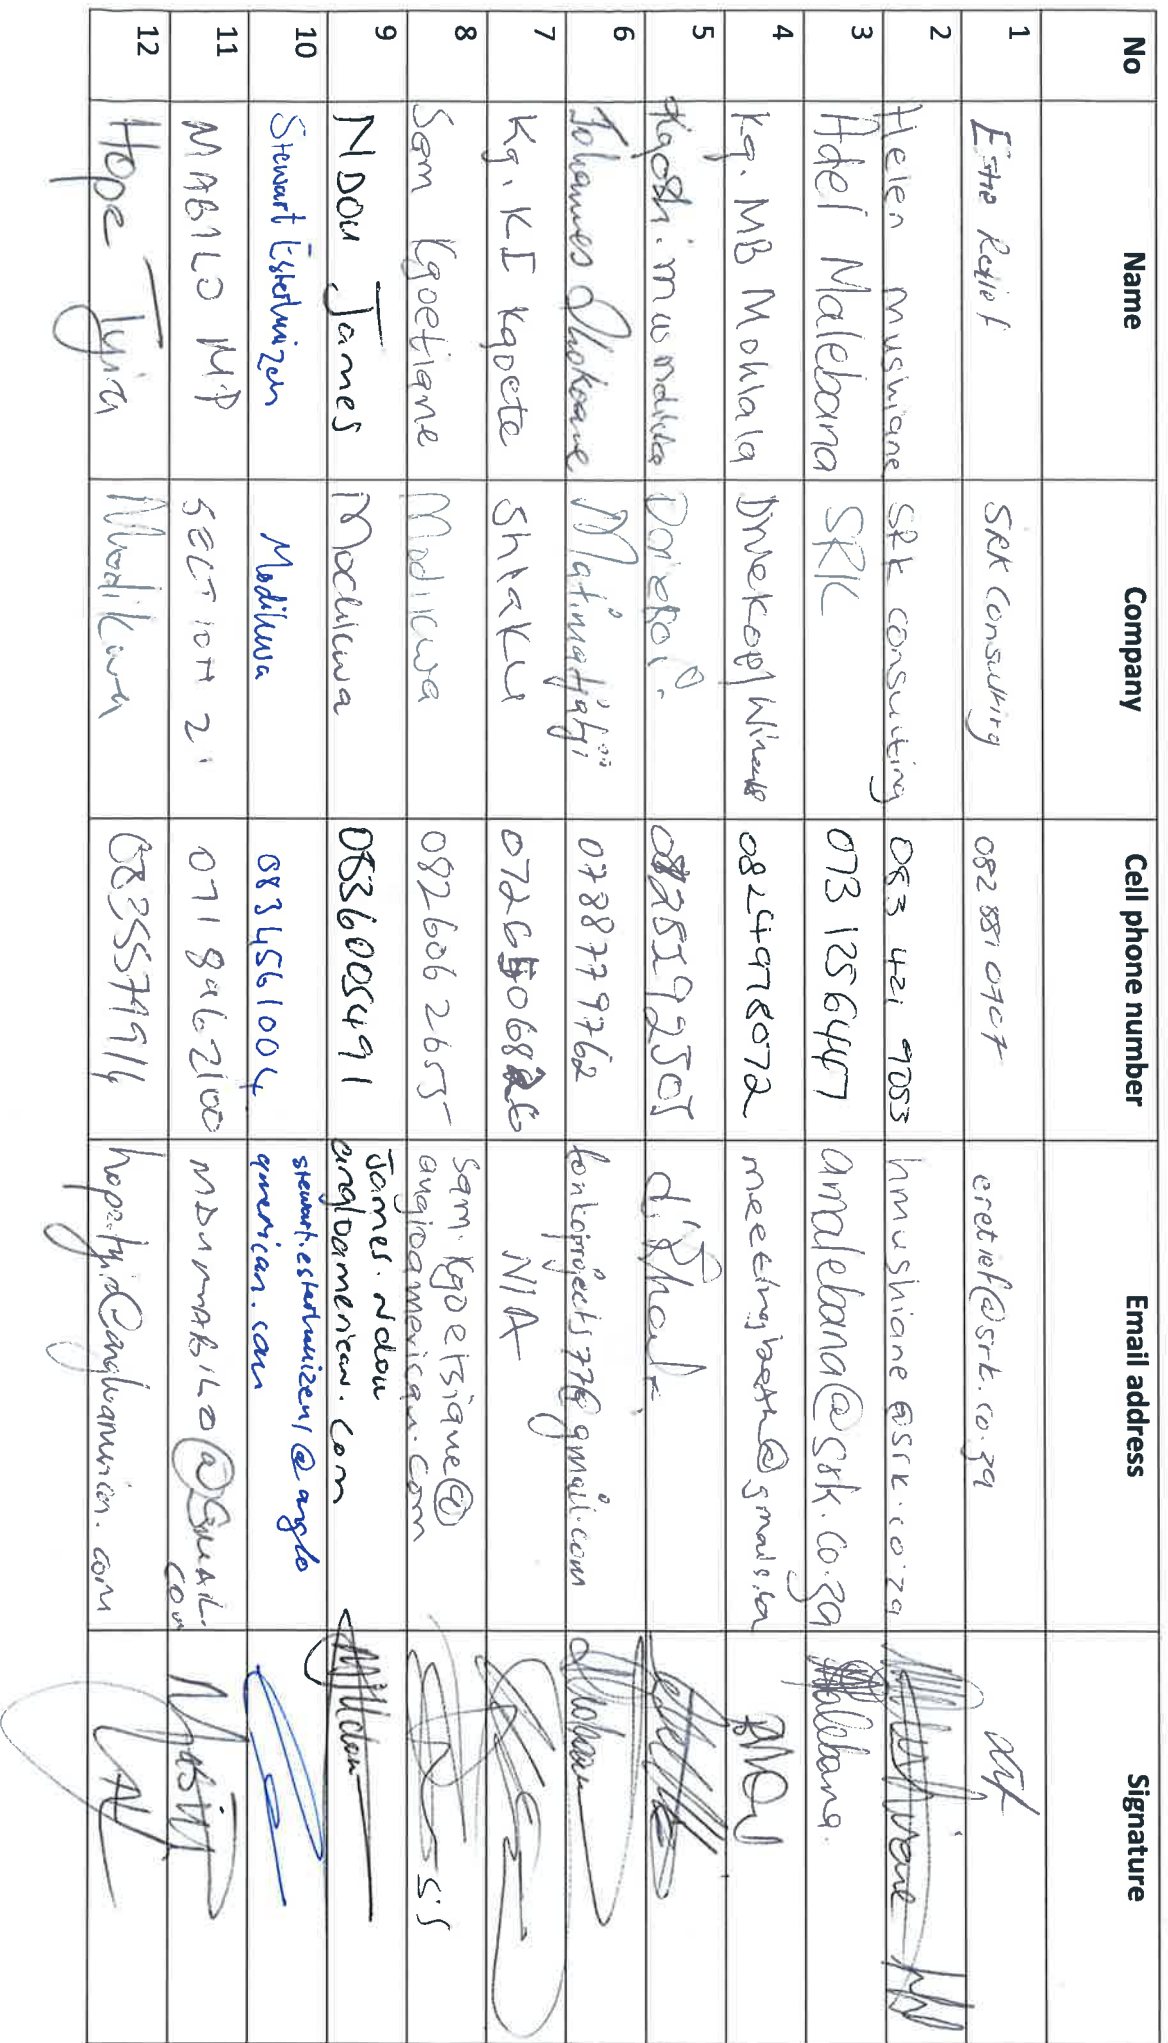 No Name Company Cell phone number Email address Signature
1 Estie Retief SRK Consulting 082 881 0707 eretief@srk.co.za
2 Helen Mushiane SRK consulting 083 421 9053 hmushiane@srk.co.za
3 Adel Malebana SRK 073 1256447 amalebana@srk.co.za Malebana.
4 Kg. MB Mohlala 0824978072
5 Kgoshi. 0828592505
6 Johannes Phokoane 0788779762
7 Kg. KI Kgoete Shaku N/A
8 Sam Kgoetiane Modikwa 0826062655 Sam.Kgoetsigne@
angloamerican.com S.S
9 NDOU James Modikwa 0836005491 James.Ndou
angloamerican.com
10 Stewart Esterhuizen Modikwa 0834561004 stewart.esterhuizen1@anglo
american.com
11 MABILO MP SECTION 21 071 8462100 MDUMABILO@GMAIL.
COM
12 Hope Tyira Modikwa 0835557991 hope.tyira@angloamerican.com